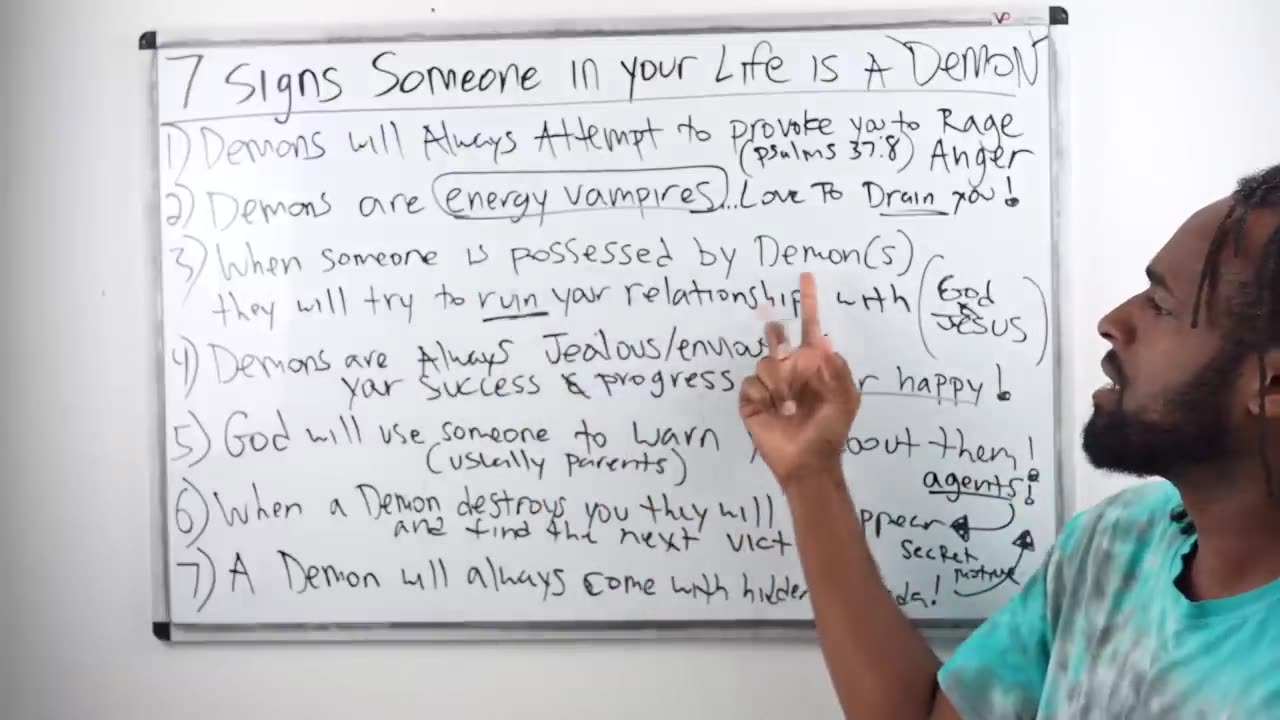 7 Signs Someone in your Life is A Demon
1) Demons will Always Attempt to provoke you to Rage
(psalms 37:8) Anger
2) Demons are energy vampires...Love To Drain you!
3) When someone is possessed by Demon(s)
they will try to ruin your relationship with (God & JESUS)
4) Demons are Always Jealous/envious
your success & progress happy!
5) God will use someone to warn about them!
(usually parents) agents!
6) When a Demon destroys you they will
and find the next
secret
7) A Demon will always come with
motive